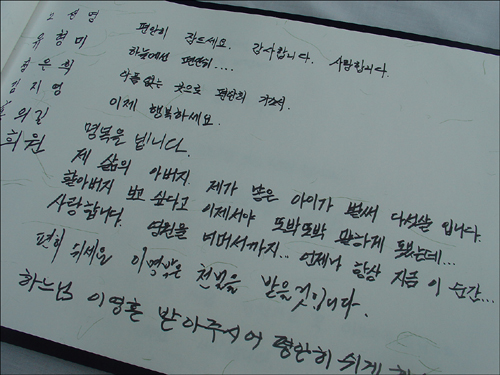 오선영 평안히 잠드세요. 감사합니다. 사랑합니다.
유형미 하늘에서 편안히....
정은희 아픔 없는 곳으로 평안히 가소서.
김지영 이제 행복하세요.
의길 명복을 빕니다.
희원 제 삶의 아버지. 제가 낳은 아이가 벌써 다섯살 입니다.
할아버지 보고 싶다고 이제서야 또박또박 말하게 됐는데...
사랑합니다. 영원을 너머서까지.. 언제나 항상 지금 이 순간...
편히 쉬세요 이명박은 천벌을 받을것입니다.
하느님 이영혼 받아주시어 평안히 쉬게